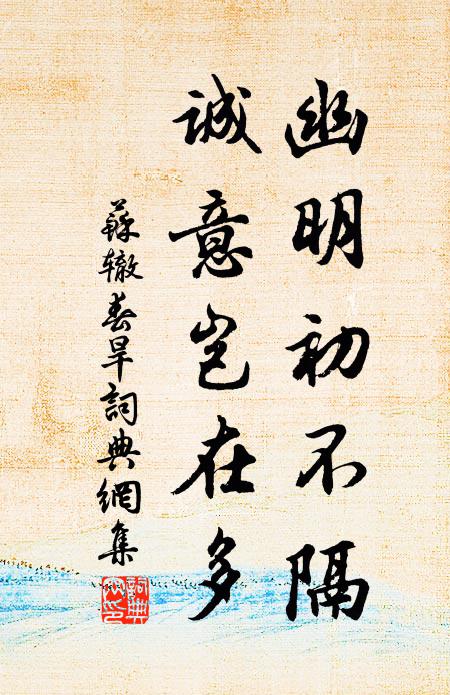 幽明初不隔
誠意岂在多
蘇辙春旱詞典網集